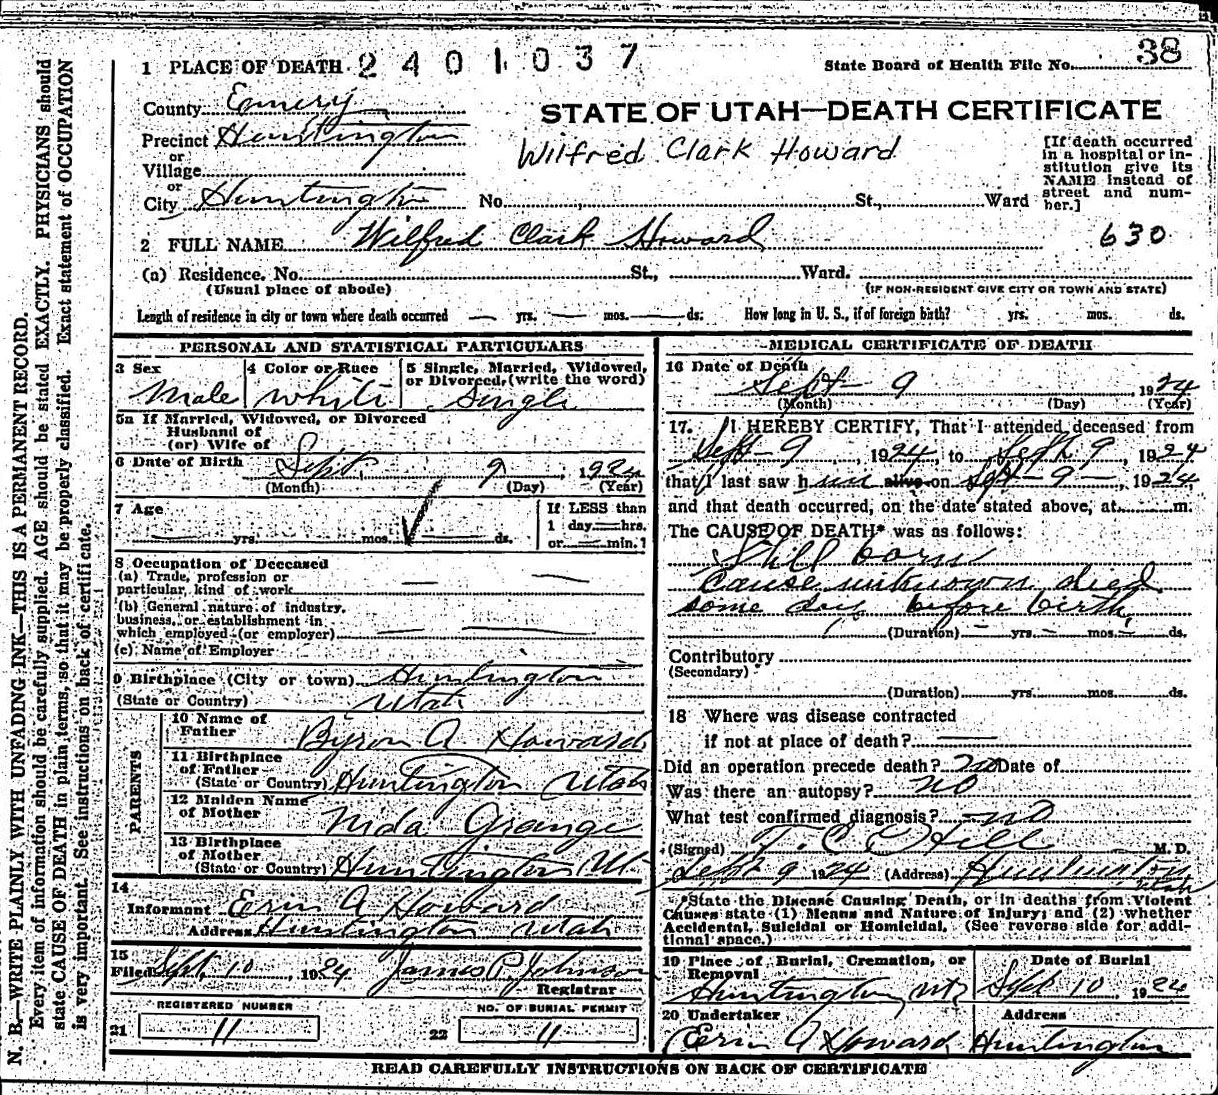 1 PLACE OF DEATH 2401037
State Board of Health File No. 38
County Emery
STATE OF UTAH—DEATH CERTIFICATE
Precinct Huntington
or
Village
or
City Huntington
Wilfred Clark Howard
[If death occurred
in a hospital or in-
stitution give its
NAME instead of
street and num-
ber.]
No. St., Ward
2 FULL NAME Wilfred Clark Howard
630
(a) Residence. No. St., Ward.
(Usual place of abode)
(IF NON-RESIDENT GIVE CITY OR TOWN AND STATE)
Length of residence in city or town where death occurred — yrs. — mos. — ds. How long in U. S., if of foreign birth? yrs. mos. ds.
PERSONAL AND STATISTICAL PARTICULARS
3 Sex
Male
4 Color or Race
White
5 Single, Married, Widowed,
or Divorced, (write the word)
Single
5a If Married, Widowed, or Divorced
Husband of
(or) Wife of
6 Date of Birth Sept 9, 1924
(Month) (Day) (Year)
7 Age
— yrs. — mos. — ds.
If LESS than
1 day — hrs.
or — min.?
8 Occupation of Deceased
(a) Trade, profession or
particular, kind of work — —
(b) General nature of industry,
business, or establishment in
which employed (or employer) — —
(c) Name of Employer
9 Birthplace (City or town) Huntington
(State or Country) Utah
PARENTS
10 Name of
Father Byron A Howard
11 Birthplace
of Father
(State or Country) Huntington Utah
12 Maiden Name
of Mother Nida Grange
13 Birthplace
of Mother
(State or Country) Huntington Ut.
14
Informant Erin A Howard
Address Huntington Utah
15
Filed Sept. 10, 1924 James P. Johnson
Registrar
REGISTERED NUMBER
21 11
NO. OF BURIAL PERMIT
22 11
MEDICAL CERTIFICATE OF DEATH
16 Date of Death
Sept 9 1924
(Month) (Day) (Year)
17. I HEREBY CERTIFY, That I attended deceased from
Sept 9, 1924, to Sept 9, 1924
that I last saw him alive on Sept 9, 1924,
and that death occurred, on the date stated above, at m.
The CAUSE OF DEATH* was as follows:
Still born
Cause unknown died
some days before birth
(Duration) — yrs. — mos. — ds.
Contributory
(Secondary)
(Duration) yrs. mos. ds.
18 Where was disease contracted
if not at place of death? —
Did an operation precede death? no Date of
Was there an autopsy? no
What test confirmed diagnosis? no
(Signed) T. C. Hill M. D.
Sept 9 1924 (Address) Huntington
Utah
*State the Disease Causing Death, or in deaths from Violent
Causes state (1) Means and Nature of Injury; and (2) whether
Accidental, Suicidal or Homicidal. (See reverse side for addi-
tional space.)
19 Place of Burial, Cremation, or
Removal
Huntington, Ut
Date of Burial
Sept 10, 1924
20 Undertaker
Erin A Howard
Address
Huntington
READ CAREFULLY INSTRUCTIONS ON BACK OF CERTIFICATE
N. B.—WRITE PLAINLY WITH UNFADING INK—THIS IS A PERMANENT RECORD.
Every item of information should be carefully supplied. AGE should be stated EXACTLY. PHYSICIANS should
state CAUSE OF DEATH in plain terms, so that it may be properly classified. Exact statement of OCCUPATION
is very important. See instructions on back of certificate.